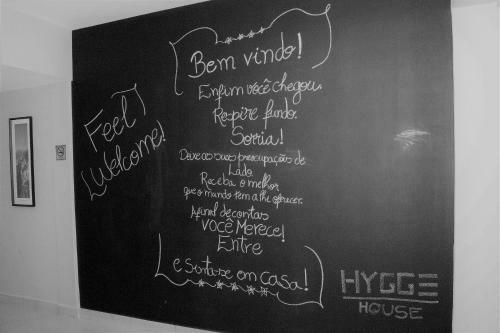 Bem vindo!
Enfim você chegou.
Respire fundo.
Sorria!
Deixe as suas preocupações de
Lado
Receba o melhor
que o mundo tem a lhe oferecer.
Afinal de contas
VOCÊ Merece!
Entre
e sinta-se em casa!
Feel
Welcome!
HYGGE
HOUSE